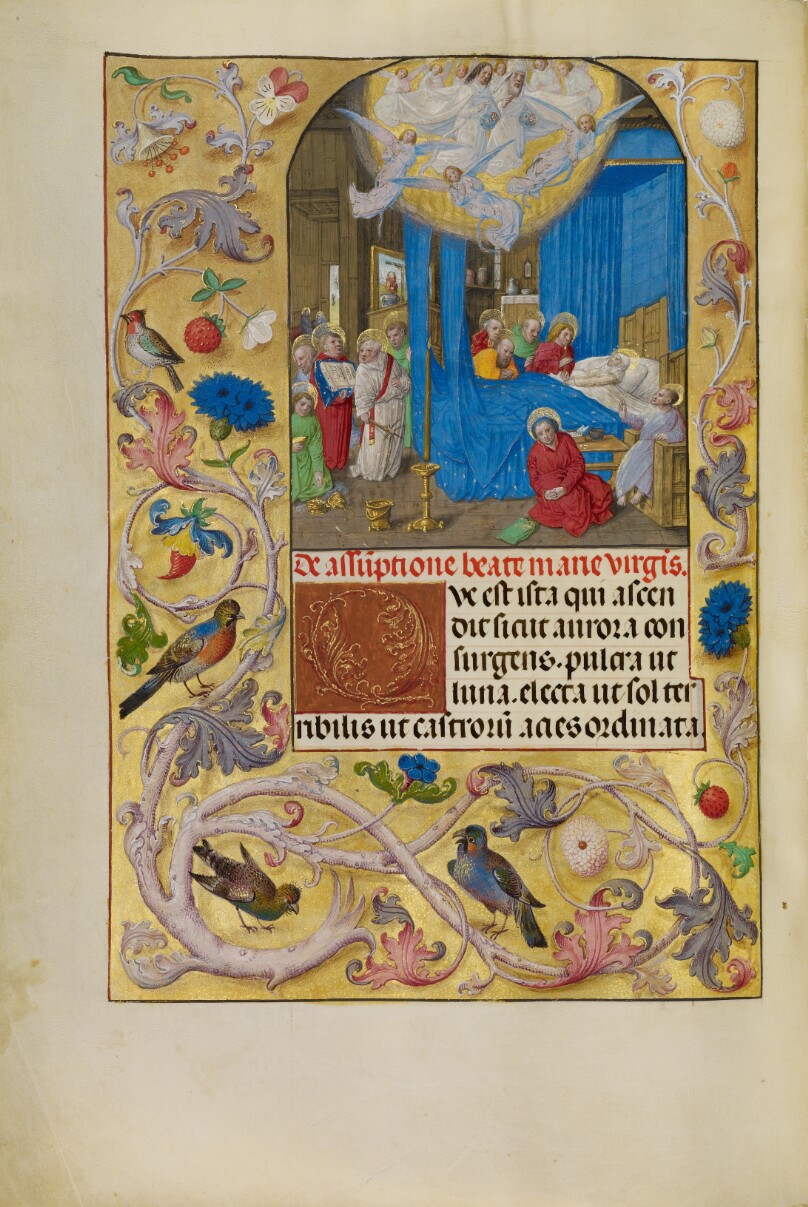 De assūptione beate marie virgīs.
Que est ista qui ascen
dit sicut aurora con
surgens. pulcra ut
luna. electa ut sol ter
ribilis ut castrorū acies ordinata.